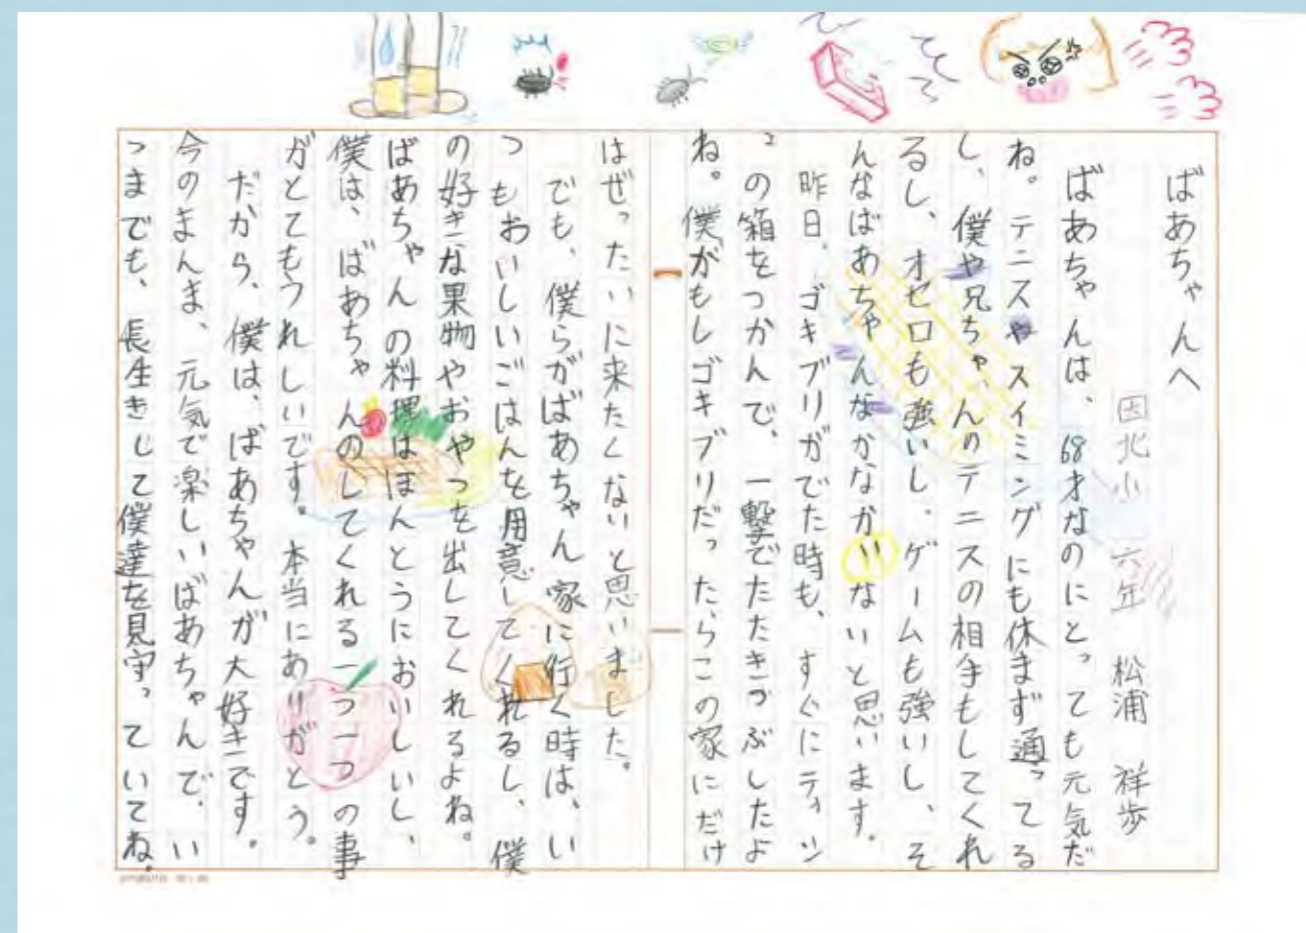 ばあちゃんへ
因北小 六年 松浦 祥歩
ばあちゃんは、68才なのにとっても元気だ
ね。テニスやスイミングにも休まず通ってる
し、僕や兄ちゃんのテニスの相手もしてくれ
るし、オセロも強いし、ゲームも強いし、そ
んなばあちゃんなかなかいないと思います。
昨日、ゴキブリがでた時も、すぐにティッシ
ュの箱をつかんで、一撃でたたきつぶしたよ
ね。僕がもしゴキブリだったらこの家にだけ
はぜったいに来たくないと思いました。
でも、僕らがばあちゃん家に行く時は、い
つもおいしいごはんを用意してくれるし、僕
の好きな果物やおやつを出してくれるよね。
ばあちゃんの料理はほんとうにおいしいし、
僕は、ばあちゃんのしてくれる一つ一つの事
がとてもうれしいです。本当にありがとう。
だから、僕は、ばあちゃんが大好きです。
今のまんま、元気で楽しいばあちゃんで、い
つまでも、長生きして僕達を見守っていてね。